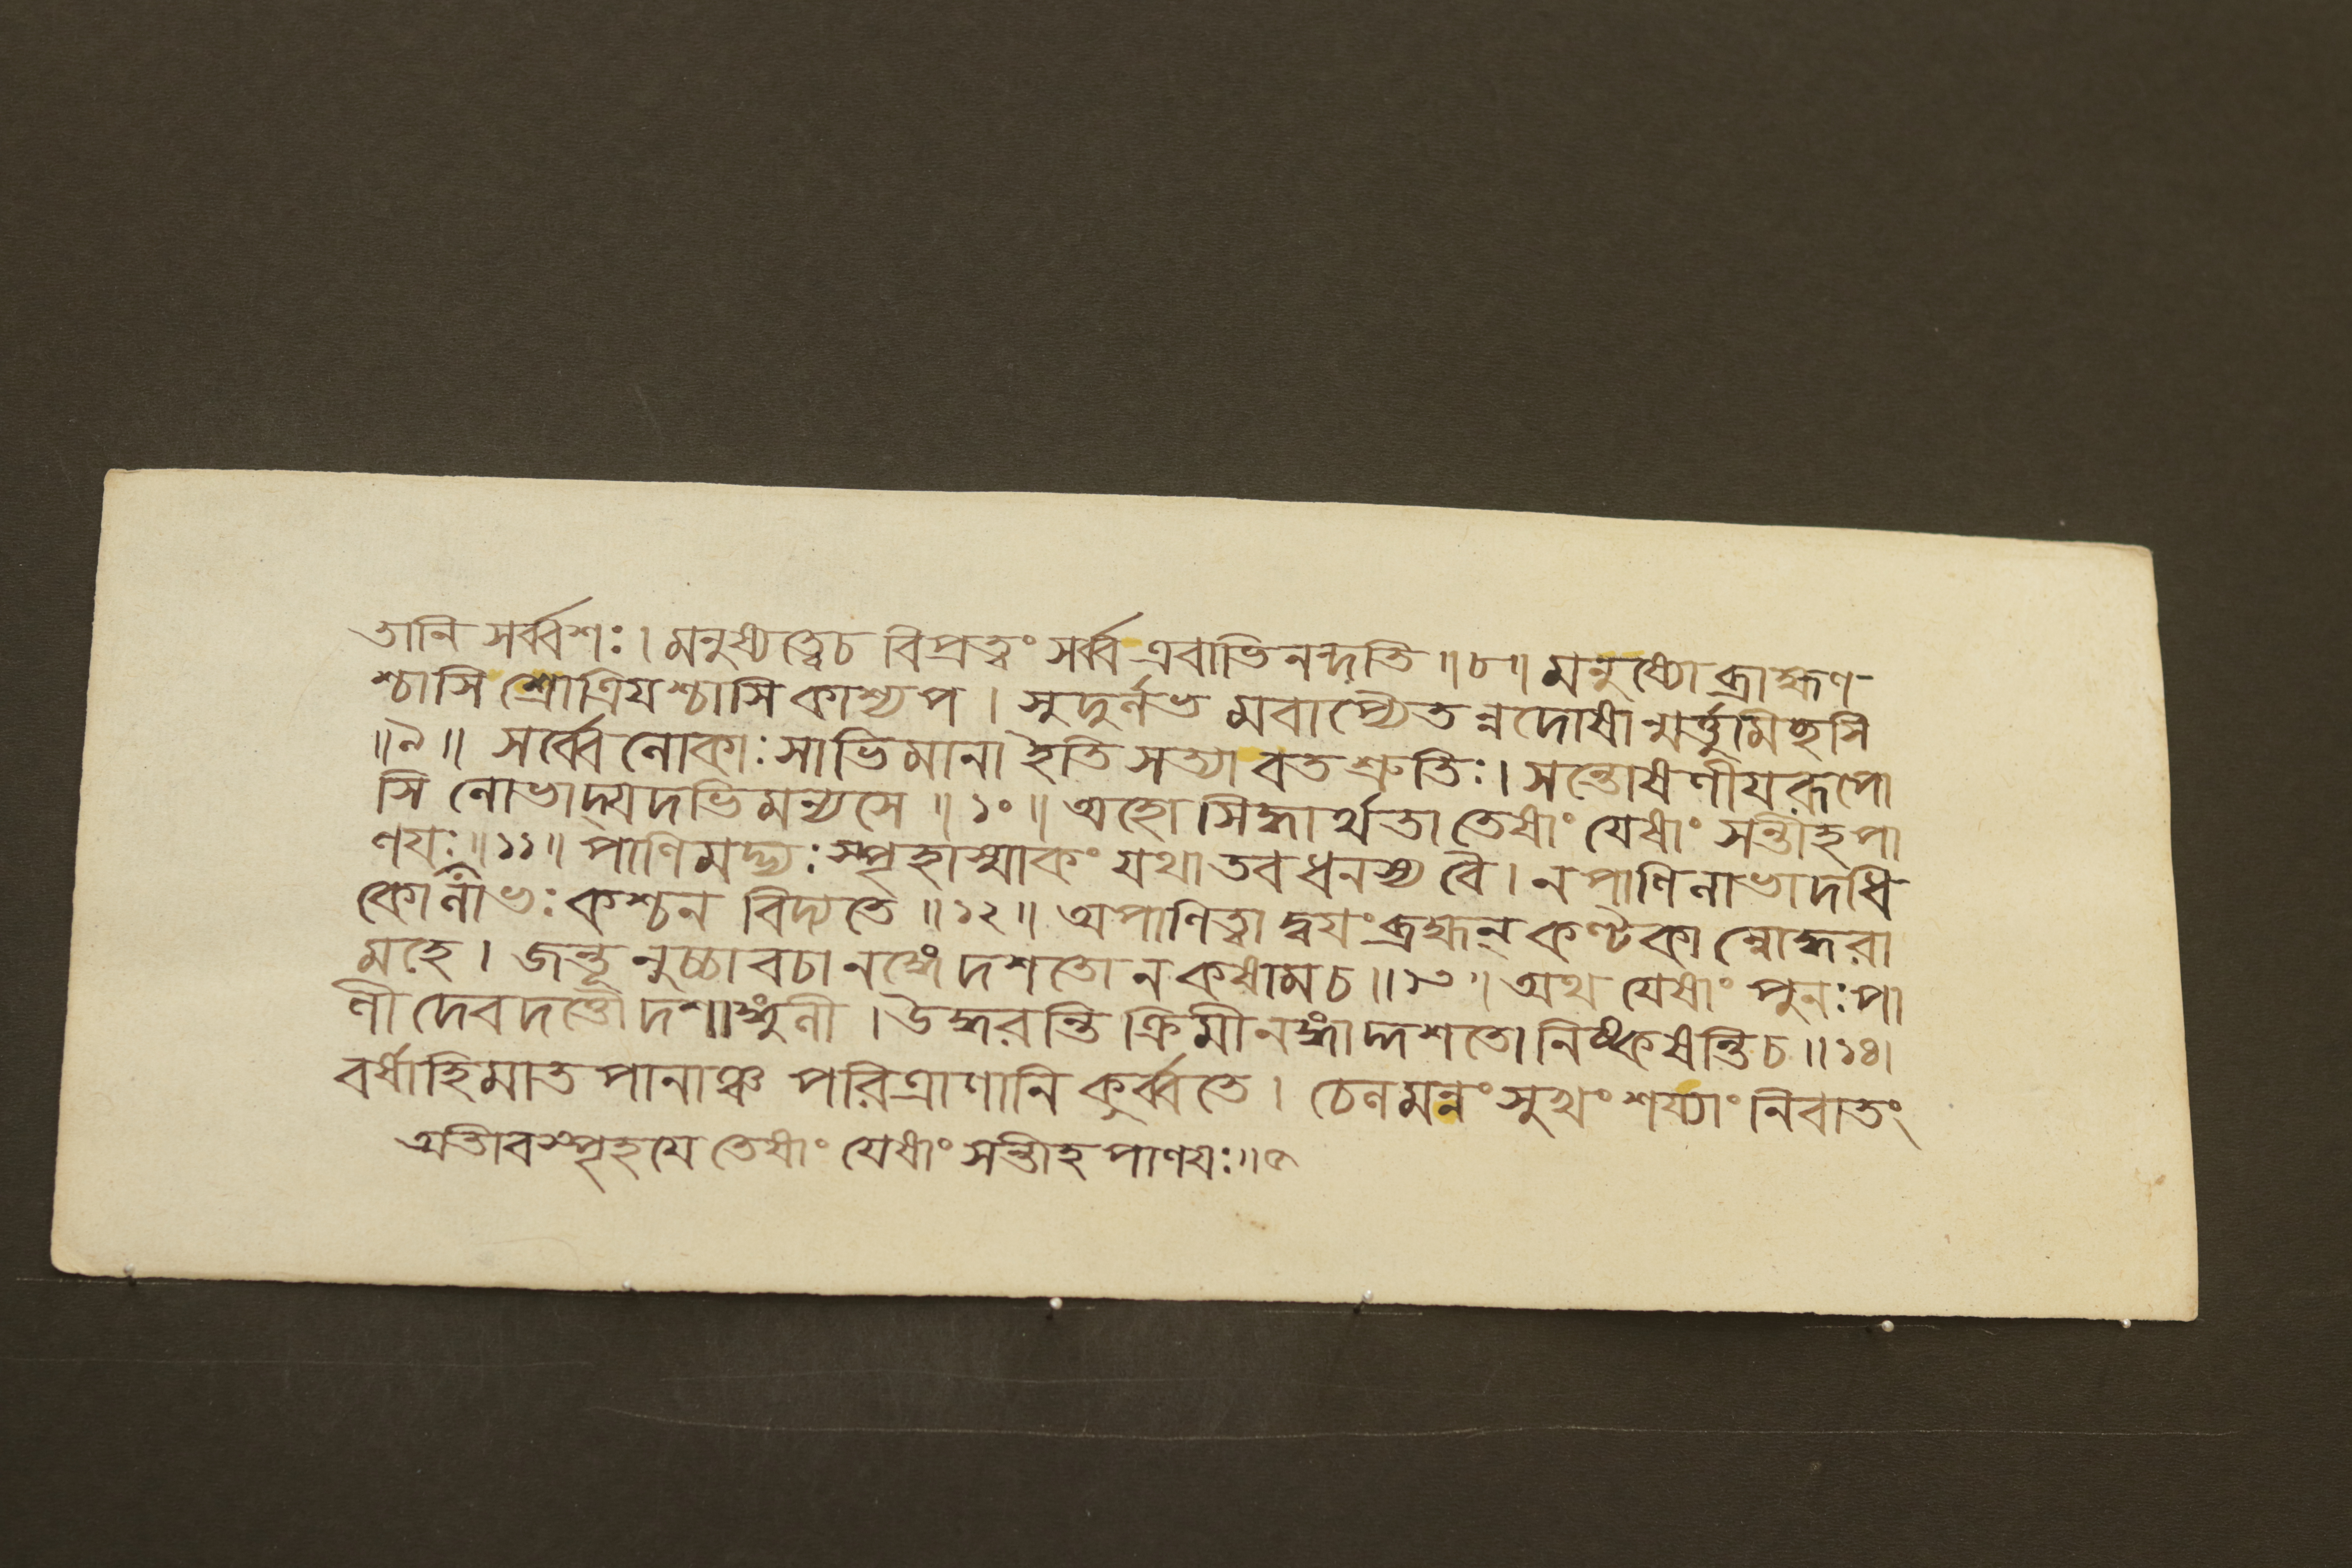 তানি সর্ব্বশঃ। মনুষ্যত্বেচ বিপ্রত্বং সর্ব্ব এবাভিনন্দতি ॥৮॥ মনুষ্যোব্রাহ্মণ-
শ্চাসি শ্রোত্রিয়শ্চাসি কাশ্যপ। সুদুর্লভ মবাপ্যৈতন্নদোষান্মর্ত্তুমিহসি
॥৯॥ সর্ব্বেলোকাঃ সাভিমানা ইতি সত্যাবতশ্রুতিঃ। সন্তোষণীয়রূপো
সি লোভাদ্যদভিমন্যসে ॥১০॥ অহো সিদ্ধার্থতা তেষাং যেষাং সন্তীহপা
ণয়ঃ॥১১॥ পাণিমদ্ভ্যঃ স্পৃহাস্মাকং যথা তব ধনস্য বৈ। নপাণিলাভাদধি
কোর্লাভঃ কশ্চন বিদ্যতে ॥১২॥ অপাণিত্বাদ্বয়ং ব্রহ্মন্ কণ্টকান্নোদ্ধরা
মহে। জন্তূনুচ্চাবচানঙ্গে দশতোনকষামচ॥১৩॥ অথ যেষাং পুনঃ পা
ণী দেবদত্তৌদশাঙ্গুলী। উদ্ধরন্তি ক্রিমীনঙ্গাদ্দশতো নিষ্কষন্তিচ॥১৪।
বর্ষাহিমাতপানাঞ্চ পরিত্রাণানি কুর্ব্বতে। চেলমন্নং সুখং শয্যাং নিবাতং
অতীবস্পৃহয়ে তেষাং যেষাং সন্তীহ পাণয়ঃ॥